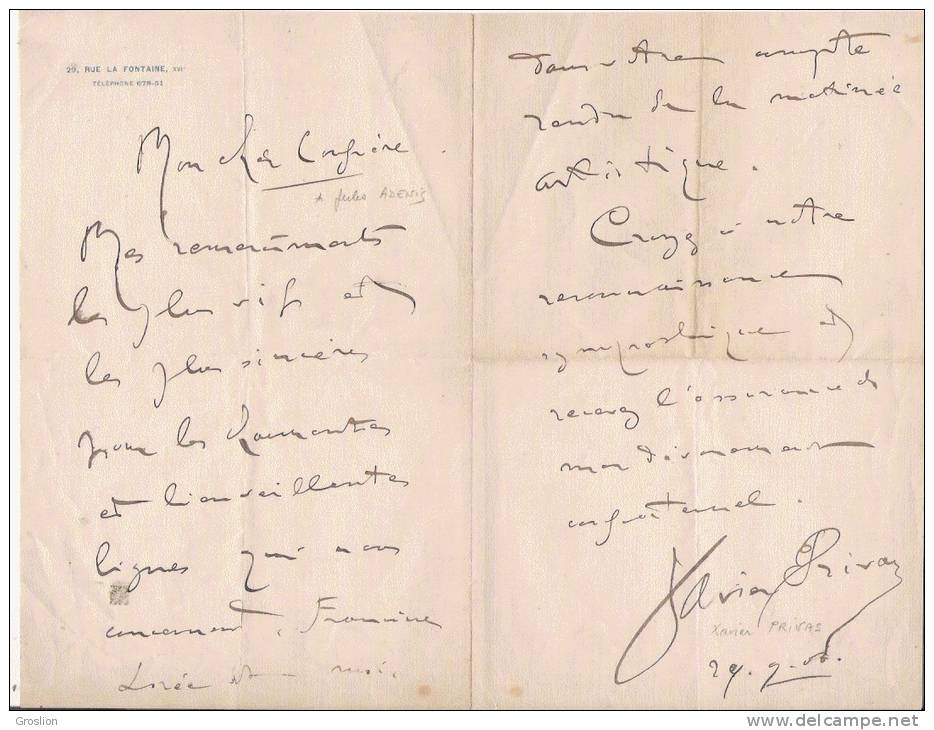 29, RUE LA FONTAINE, XVIe
TÉLÉPHONE 678-51
Mon cher Confrère.
Jules ADENIS
Mes remerciements
les plus vifs et
les plus sincères
pour les charmantes
et bienveillantes
lignes qui nous
concernent, Francine
Lorée et moi,
dans votre compte
rendu de la matinée
artistique.
Croyez à notre
reconnaissance
sympathique et
recevez l'assurance de
mon dévouement
confraternel.
Xavier Privas
Xavier PRIVAS
Groslion
www.delcampe.net